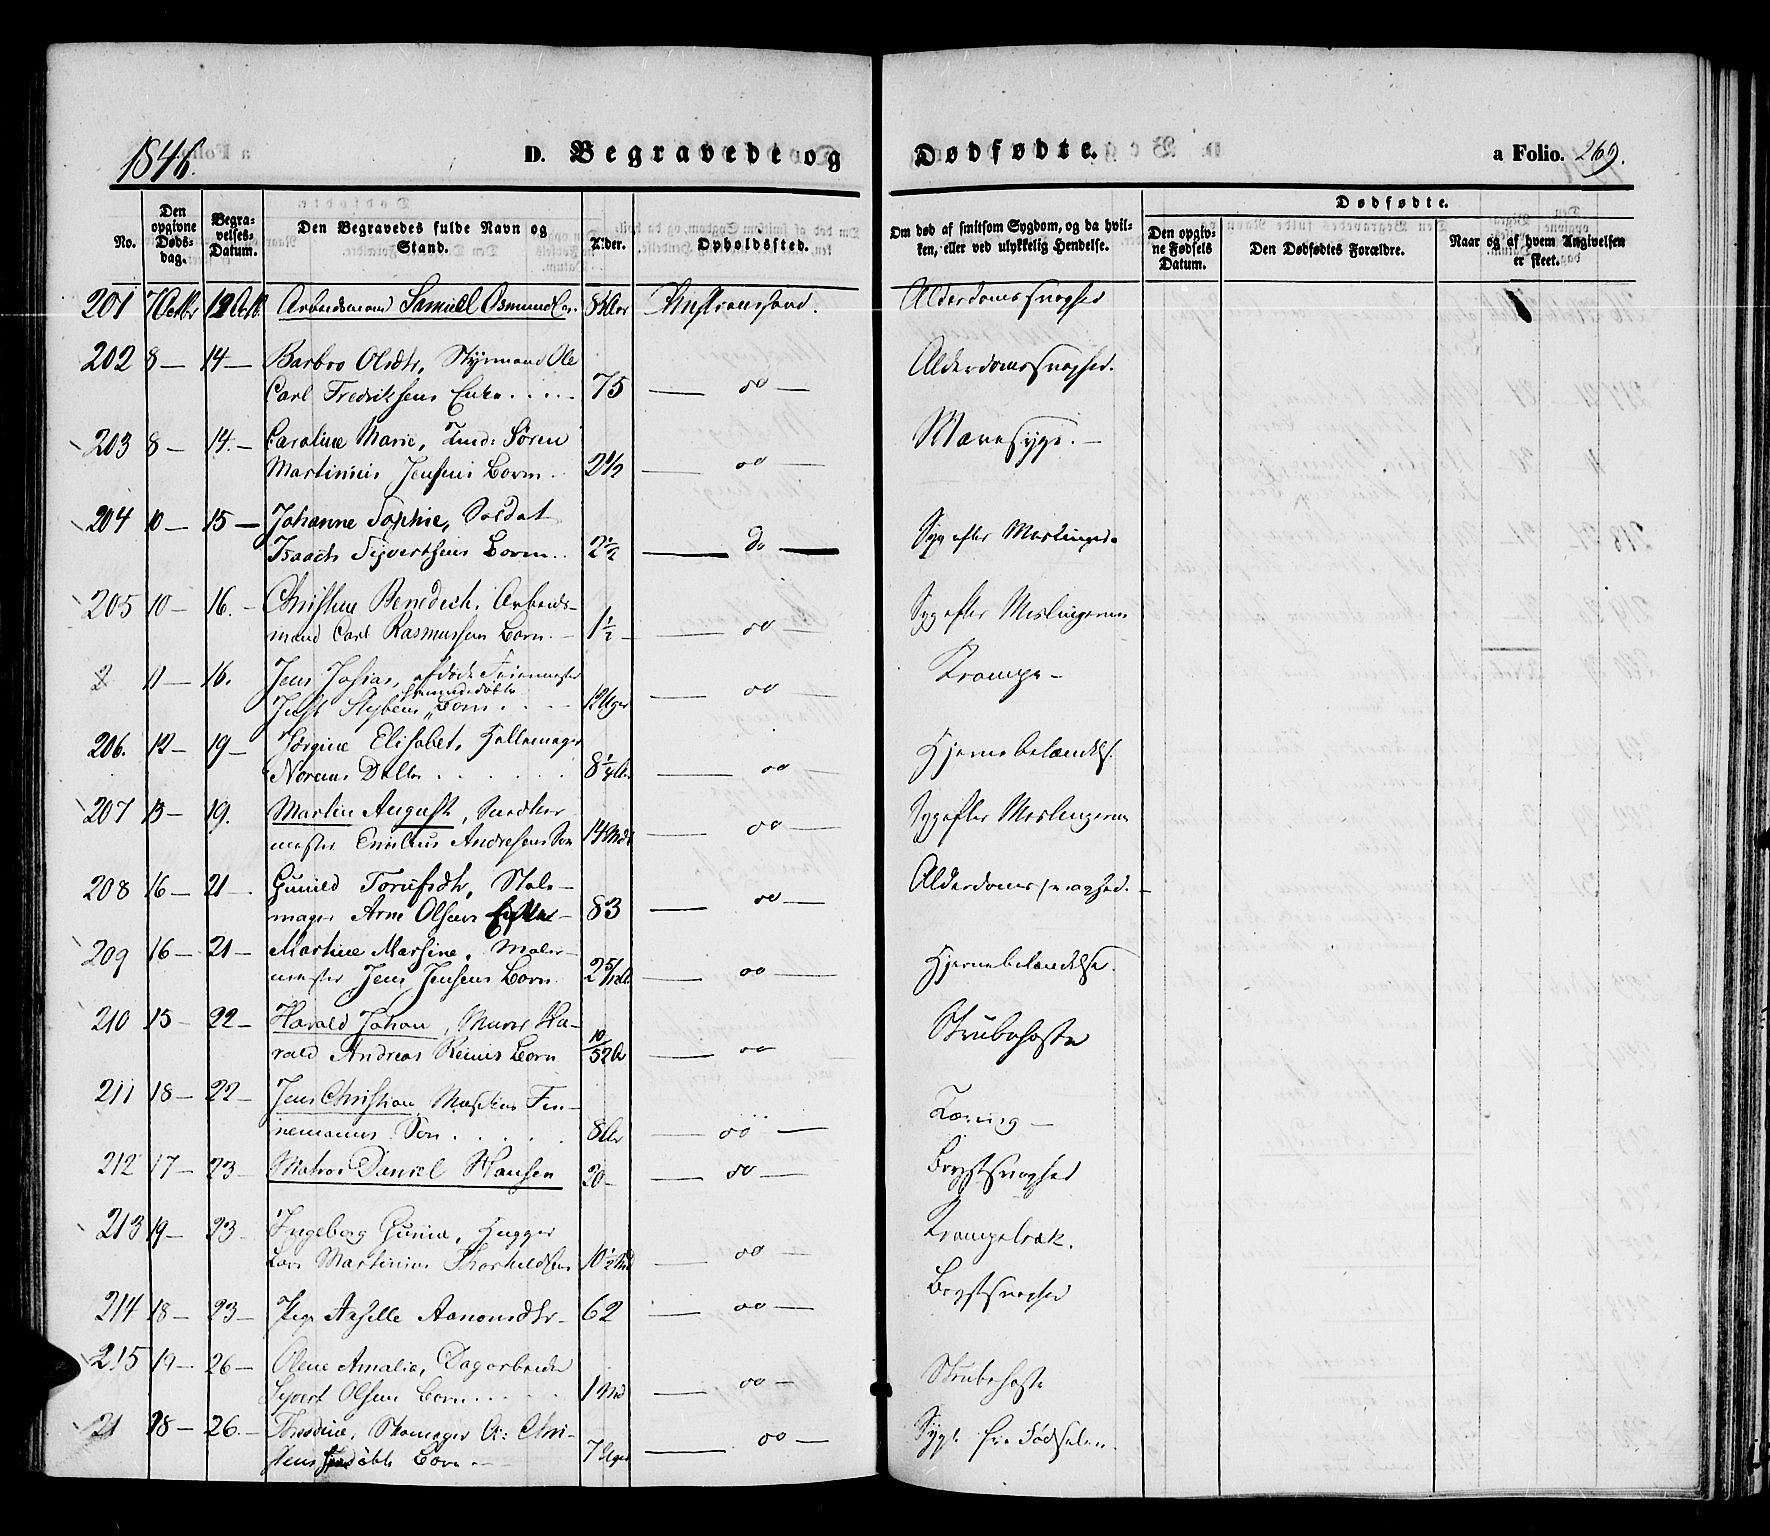 1846.
D. Begravede og Dødfødte.
a Folio. 269.
No.
Den opgivne Døds-dag.
Begra-velses-Datum.
Den Begravedes fulde Navn og Stand.
Alder.
Opholdssted.
Om død af smitsom Sygdom, og da hvil-ken, eller ved ulykkelig Hendelse.
Dødfødte.
Den opgiv-ne Fødsels Datum.
Den Dødfødtes Forældre.
Naar og af hvem Angivelsen er skeet.
201 7 Octbr 12 Octb. Arbeidsmand Samuel Osmundsen. Christianssand. Alderdomssvaghed
202 8 — 14 — Barbro Olsdtr, Styrmand Ole
Carl Fredriksens Enke . . . . 75 — do — Alderdomssvaghed.
203 8 — 14. — Caroline Marie, Tmd: Søren
Martinius Jensens Barn . 2 1/2 — do — Mavesyge. —
204 10 — 15 — Johanne Sophie, Soldat
Isaach Sivertsens Barn . . 2 1/2 — do — Syg efter Meslingerne
205 10 — 16. — Christine Benedict. Arbeids-
mand Carl Rasmussens Barn. — 1 1/2 — do — Syg efter Meslingerne
11 — 16. Jens Josias, afdøde Feiermester
Just Stybens hjemmedøbte Barn . 12 Uger — do — Krampe —
206. 12 — 19 — Jørgine Elisabet,
8 1/4 — do — Hjernebetændels.
207 13 — 19. Martin August, Snedker-
mester Emilius Andresens Søn 14 Mdr — do — Syg efter Meslingerne
208 16 — 21 — Gunild Torufsdtr, Stole-
mager Arne Olsens Enke — 83 — do — Alderdomssvaghed. —
209 16 — 21 — Martine Marsine, Maler-
mester Jens Jensens Barn — do — Hjernebetændelse.
210 15 — 22 — Harald Johan, Murer Ha-
rald Andreas Reines Barn 10/52 Ar — do — Strubehoste
211 18 — 22 — Jens Christian,
nemanns Søn . . . . . 8 Ar — do — Tæring —
212 17 — 23 — Matros Daniel Hansen 20 — do — Brystsvaghed
213 19 — 23 — Ingeborg Gurine, Hugger
Lars Martinius Thorkildsens 10 1/2 Md — do — Krampetræk.
214 18 — 23 — Pige Asselle Aanonsdtr — 62 — do — Brystsvaghed
215 19 — 26 — Olene Amalia, Dagarbeider
Syvert Olsens Barn . . . . 1 Md — do — Strubehoste
21 18 — 26. — Thrødine, Skomager A: Chri-
stens hjemdøbte Barn — 7 Uger — do — Sygl. fra Fødselen.